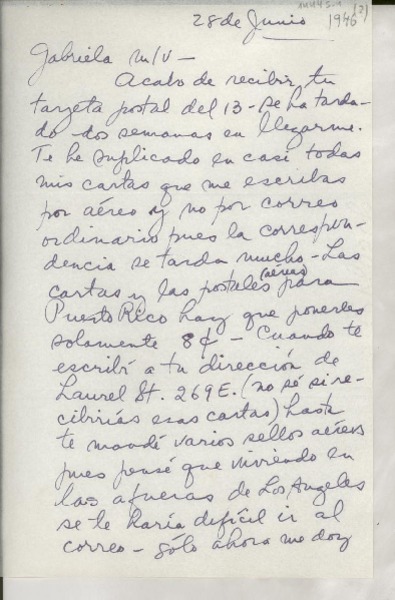 28 de Junio 1946 (?)
Gabriela m/v -
Acabo de recibir tu
tarjeta postal del 13 - se ha tarda-
do dos semanas en llegarme.
Te he suplicado en casi todas
mis cartas que me escribas
por aéreo y no por correo
ordinario pues la correspon-
dencia se tarda mucho - Las
cartas y las postales (aéreas) para
Puerto Rico hay que ponerles
solamente 8¢ - Cuando te
escribí a tu dirección de
Laurel St. 269 E. (no sé si re-
cibirías esas cartas) hasta
te mandé varios sellos aéreos
pues pensé que viviendo en
las afueras de Los Angeles
se te haría difícil ir al
correo - sólo ahora me doy